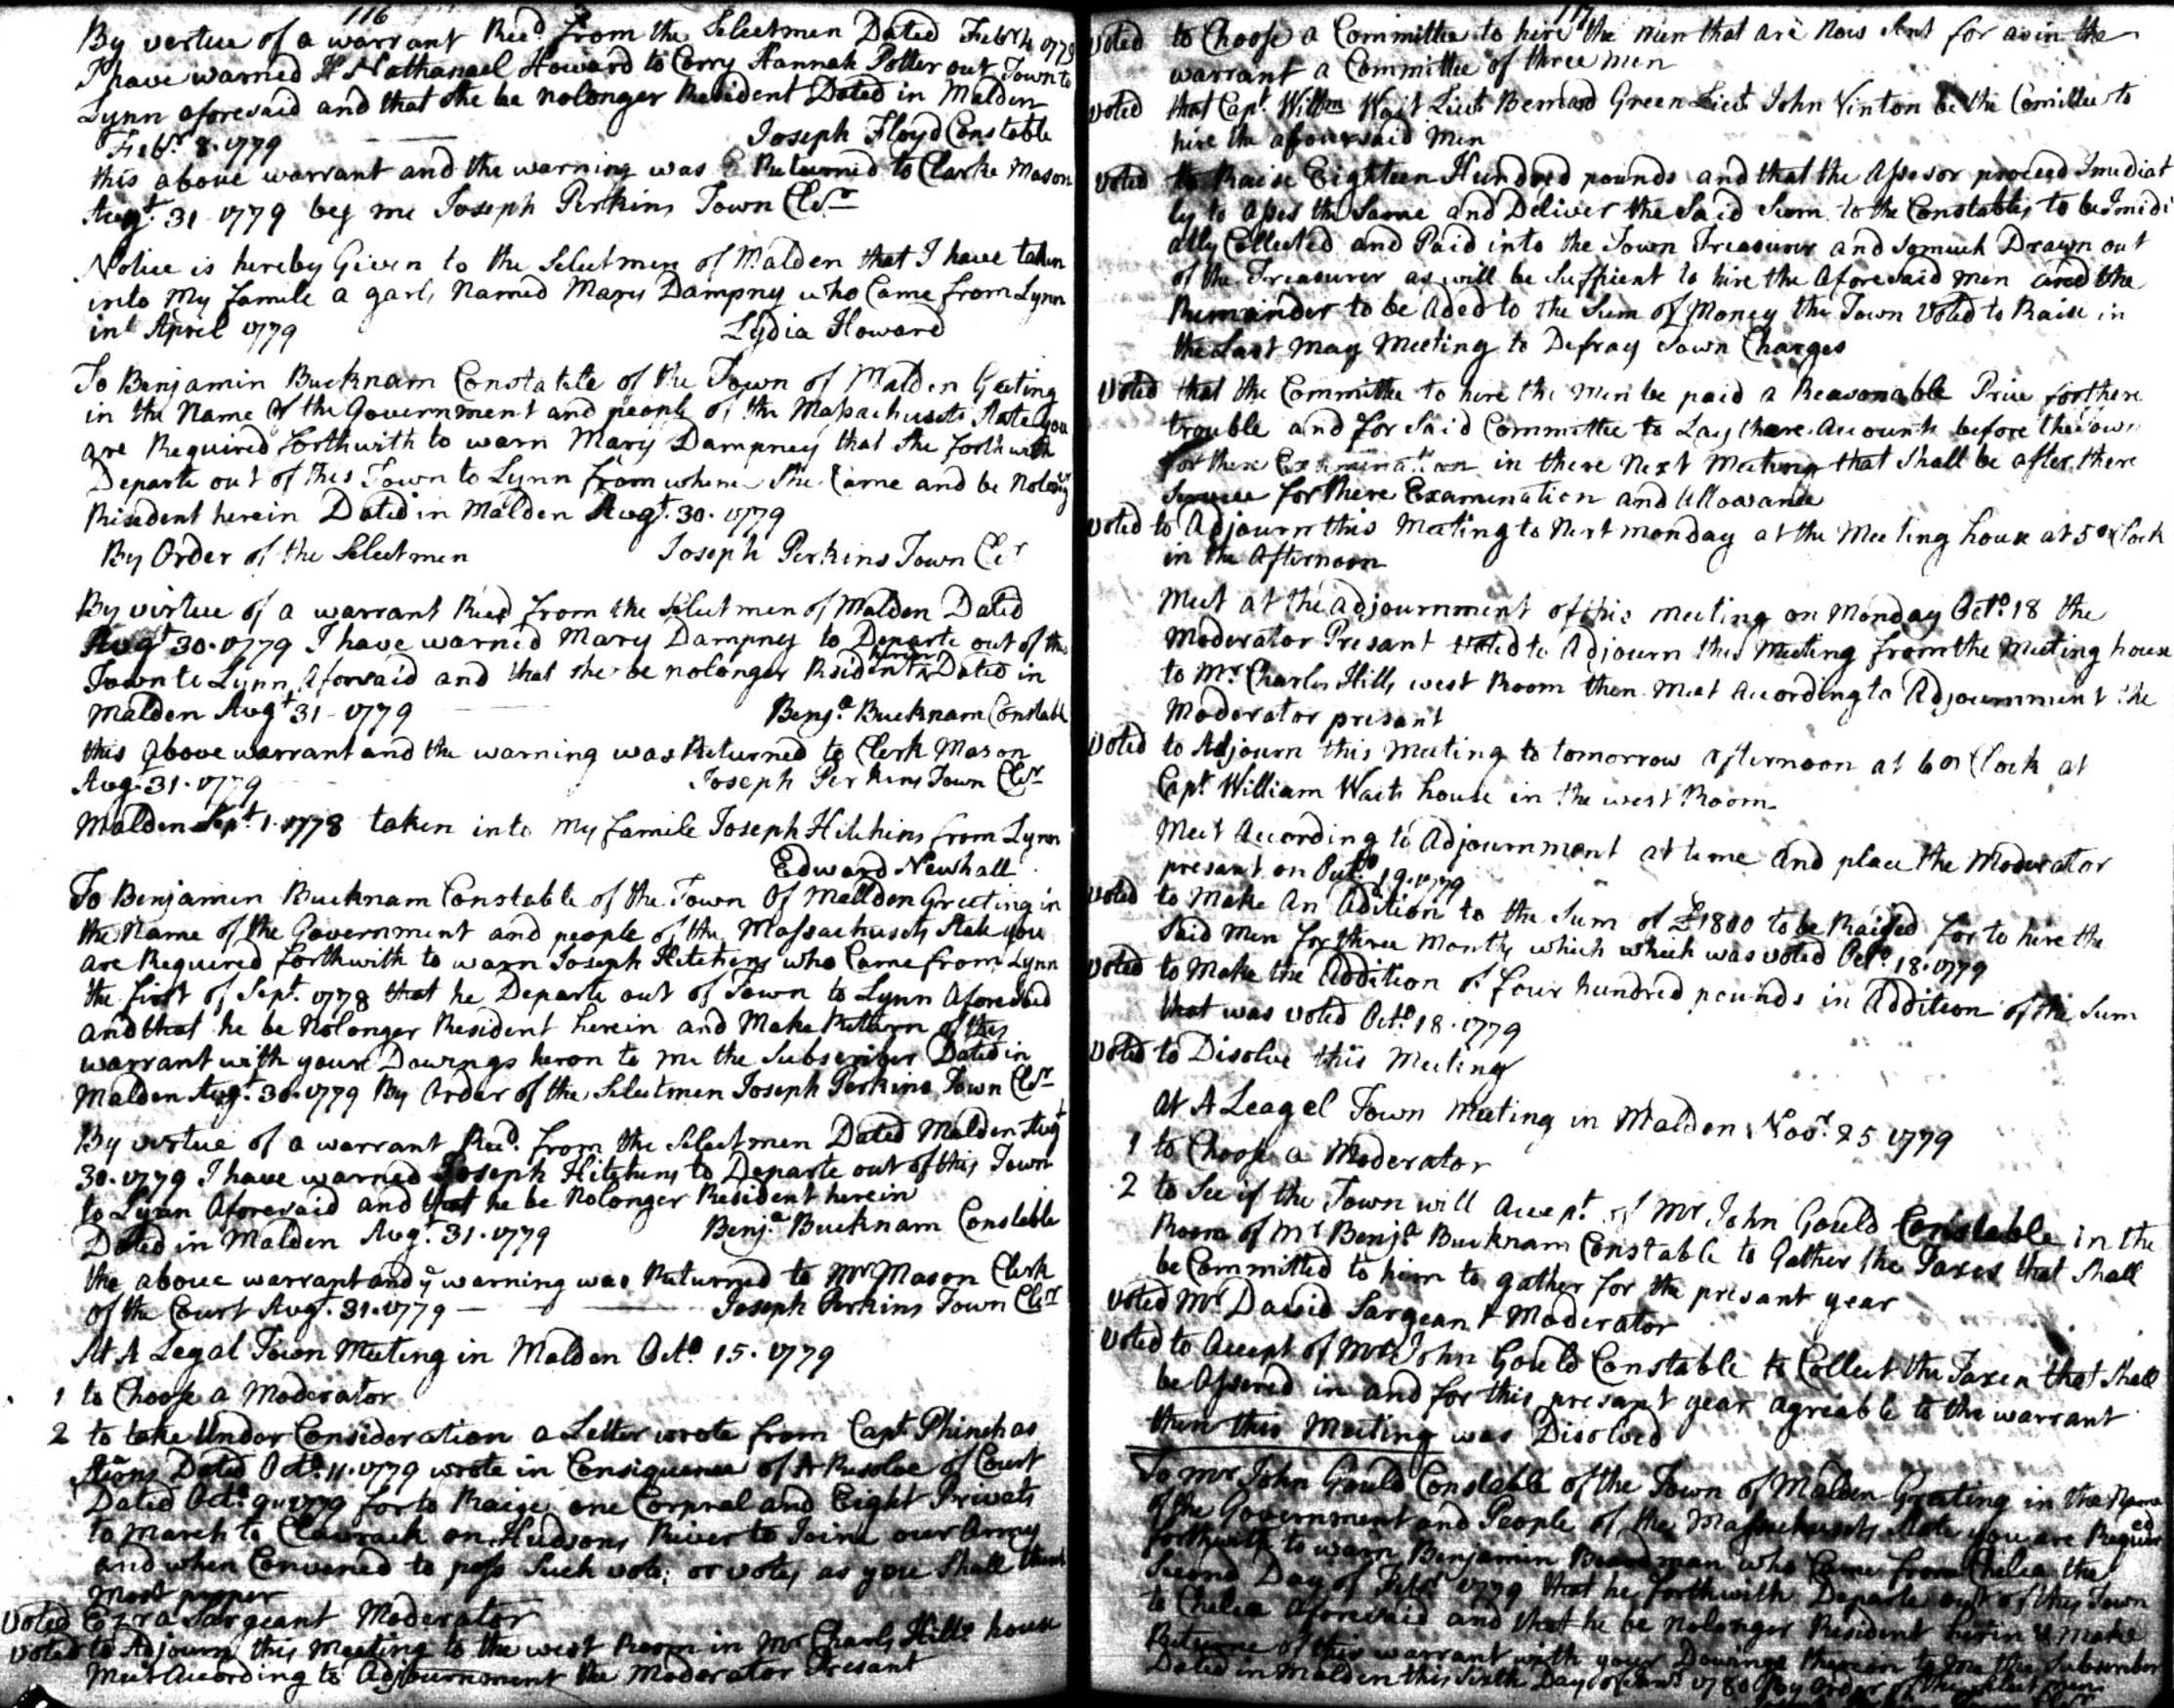 116
By vertue of a warrant Recd from the Selectmen Dated Febr 4 1779
I have warned Nathanael Howard to Corry Hannah Potter out Town to
Lynn aforesaid and that she be nolonger Resident Dated in Malden
Febr. 8. 1779 Joseph Floyd Constable
this above warrant and the warning was Returned to Clarke Mason
Augt. 31 1779 by me Joseph Perkins Town Cler
Notice is hereby Given to the Selectmen of Malden that I have taken
into my famile a garl Named Mary Dampney who Came from Lynn
in April 1779 Lydia Howard
To Benjamin Bucknam Constable of the Town of Malden Geeting
in the Name of the Government and people of the Massachusets State you
are Required forthwith to warn Mary Dampney that she forthwith
Departe out of this Town to Lynn from whence she Came and be nolonger
Risedent herein Dated in Malden Augt. 30. 1779
By Order of the Selectmen Joseph Perkins Town Cler
By virtue of a warrant Recd from the Selectmen of Malden Dated
Augt 30. 1779 I have warned Mary Dampney to Departe out of this
Town to Lynn Aforsaid and that she be nolonger Resident herein Dated in
Malden Augt 31 - 1779 Benja Bucknam Constable
this above warrant and the warning was Returned to Clerk Mason
Augt. 31. 1779 Joseph Perkins Town Cler
Malden Sept. 1. 1778 taken into my famile Joseph Hitchins from Lynn
Edward Newhall
To Benjamin Bucknam Constable of the Town of Mallden Greeting in
the Name of the Government and people of the Massachusets State you
are Required forthwith to warn Joseph Hitchens who Came from Lynn
the first of Sept. 1778 that he Departe out of Town to Lynn Aforesaid
and that he be nolonger Resident herein and Make Return of this
warrant with your Dowings heron to me the Subscriber Dated in
Malden Augt. 30. 1779 By Order of the Selectmen Joseph Perkins Town Cler
By vertue of a warrant Recd. from the Selectmen Dated Malden Augt
30. 1779 I have warned Joseph Hitchens to Departe out of this Town
to Lynn Aforesaid and that he be nolonger Resident herein
Dated in Malden Augt. 31. 1779 Benja Bucknam Constable
the above warrant and ye warning was Returned to Mr Mason Clerk
of the Court Augt. 31. 1779 Joseph Perkins Town Cler
At A Legal Town Meeting in Malden Octo 15. 1779
1 to Choose a Moderator
2 to take Under Consideration a Letter wrote from Capt Phinehas
Dated Octo. 11. 1779 wrote in Consiquence of A Resolve of Court
Dated Octo. 9. 1779 for to Raige one Corpral and Eight Privats
to march to Clawrack on Hudsons River to Joine our Army
and when Convened to pass Such vote; or votes as you Shall think
Most proper
Voted Ezra Sargeant Moderator
Voted to Adjourn this Meeting to the west Room in Mr Charls Hills house
Meet According to Adjournment the Moderator Presant
117
Voted to Choose a Committee to hire the men that are now Sent for as in the
warrant a Committee of three men
Voted that Capt. Willm Wait Liut Bernard Green Liet John Vinton be the Comittee to
hire the aforesaid Men
Voted to Raise Eighteen Hundred pounds and that the Assesor proceed Imediat
ly to Asses the Same and Deliver the Said Sum to the Constables to be Imedi
atly Collected and Paid into the Town Treasurer and somuch Drawn out
of the Treasurer as will be Suffient to hire the Aforesaid men and the
Remainder to be Aded to the Sum of Money the Town Voted to Raise in
the Last May Meeting to Defray Town Charges
Voted that the Committee to hire the Men be paid a Reasonable Price for there
trouble and for Said Committee to Lay there Accounts before the Town
for there Examination in there Next Meeting that Shall be after there
Service for there Examination and Allowance
Voted to Adjourn this Meeting to Next monday at the Meeting house at 5 o Clock
in the Afternoon
Meet at the adjournment of this meeting on Monday Octo. 18 the
Moderator Presant Voted to Adjourn this Meeting from the Meeting house
to Mr. Charles Hills west Room then Meet According to Adjournment the
Moderator presant
Voted to Adjourn this Meeting to tomorrow afternoon at 6 o Clock at
Capt William Waits house in the west Room
Meet According to Adjournment at time and place the Moderator
presant on Octo. 19. 1779
Voted to Make An Adition to the Sum of £1800 to be Raised for to hire the
Said men for three Months which which was voted Octo. 18. 1779
Voted to Make the Addition of four hundred pounds in Addition of the Sum
that was voted Octo. 18. 1779
Voted to Disolve this Meeting
At A Leagel Town Meeting in Malden Novr. 25 1779
1 to Choose a Moderator
2 to See if the Town will Accept. of Mr John Gould Constable in the
Room of Mr Benja Bucknam Constable to Gather the Taxes that Shall
be Committed to him to gather for the presant year
Voted Mr David Sargeant Moderator
Voted to Accept of Mr John Gould Constable to Collect the Taxes that Shall
be Assesed in and for this presant year agreable to the warrant
then this Meeting was Disolved
To Mr John Gould Constable of the Town of Malden Greeting in the Name
of the Government and People of the Massachusets State you are Required
forthwith to warn Benjamin Boardman who Came from Chelsea the
Second Day of Febr 1779 that he forthwith Departe out of this Town
to Chelsea Aforesaid and that he be nolonger Resident herin & make
Returne of this warrant with your Dowings thereon to me the Subscriber
Dated in Malden this Sixth Day of Janr 1780 By order of the Selectmen